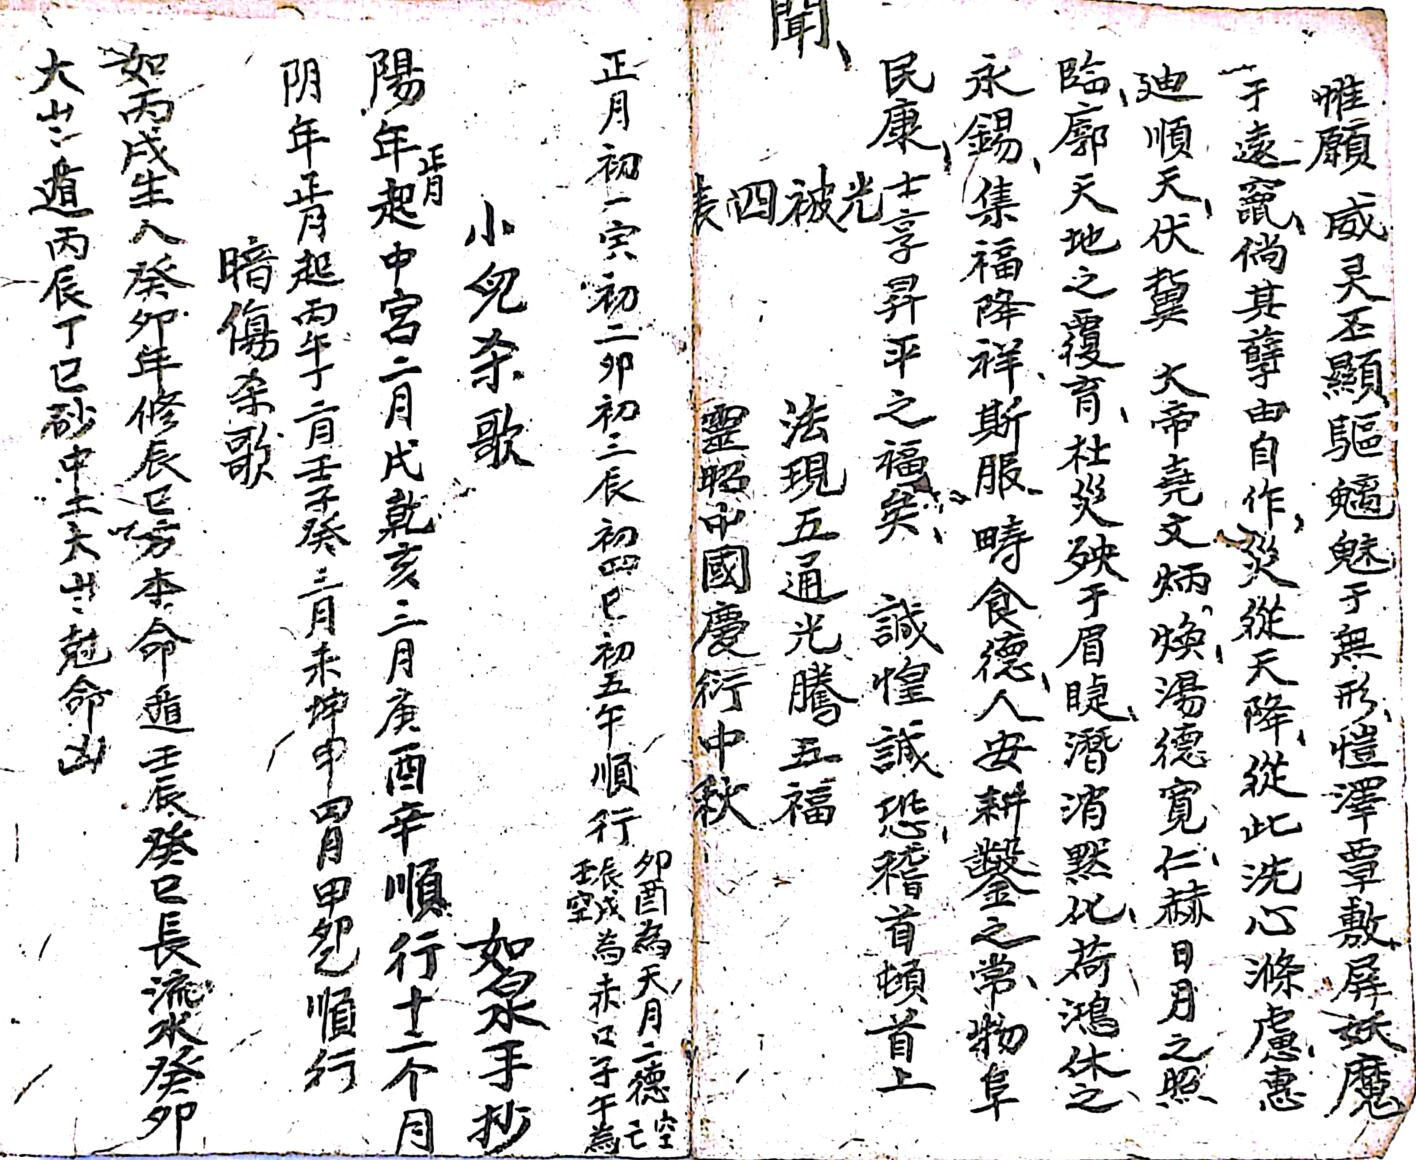 惟願 威灵丕顯驅魑魅于無形愷澤覃敷屏妖魔
于遠竄倘其孽由自作災從天降從此洗心滌慮惠
迪順天伏冀 大帝堯文炳煥湯德寬仁赫日月之照
臨廓天地之覆育杜災殃于眉睫潛消默化荷鴻休之
永錫集福降祥斯服疇食德人安耕鑿之常物阜
民康士享昇平之福矣 誠惶誠恐稽首頓首上
聞
光被四表
法現五通光騰五福
靈昭中國慶衍中秋
正月初一寅初二卯初三辰初四巳初五午順行
卯酉為天月二德空亡
辰戌為赤口子午為壬空
小兒杀歌 如泉手抄
陽年正月起中宮二月戌乾亥三月庚酉辛順行十二个月
阴年正月起丙午丁二月壬子癸三月未坤申四月甲卯乙順行
暗傷杀歌
如丙戌生人癸卯年修辰巳方本命遁壬辰癸巳長流水癸卯
大岁遁丙辰丁巳砂中土大岁尅命凶